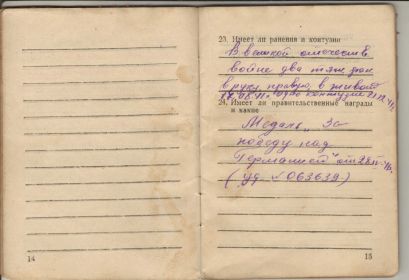 23. Имеет ли ранения и контузии
В великой отечеств.
войне два тяж. ран.
в руку правую, в живот
24. Имеет ли правительственные награды
и какие
Медаль „За
победу над
Германией" от
(уд. № 063639)
14
15